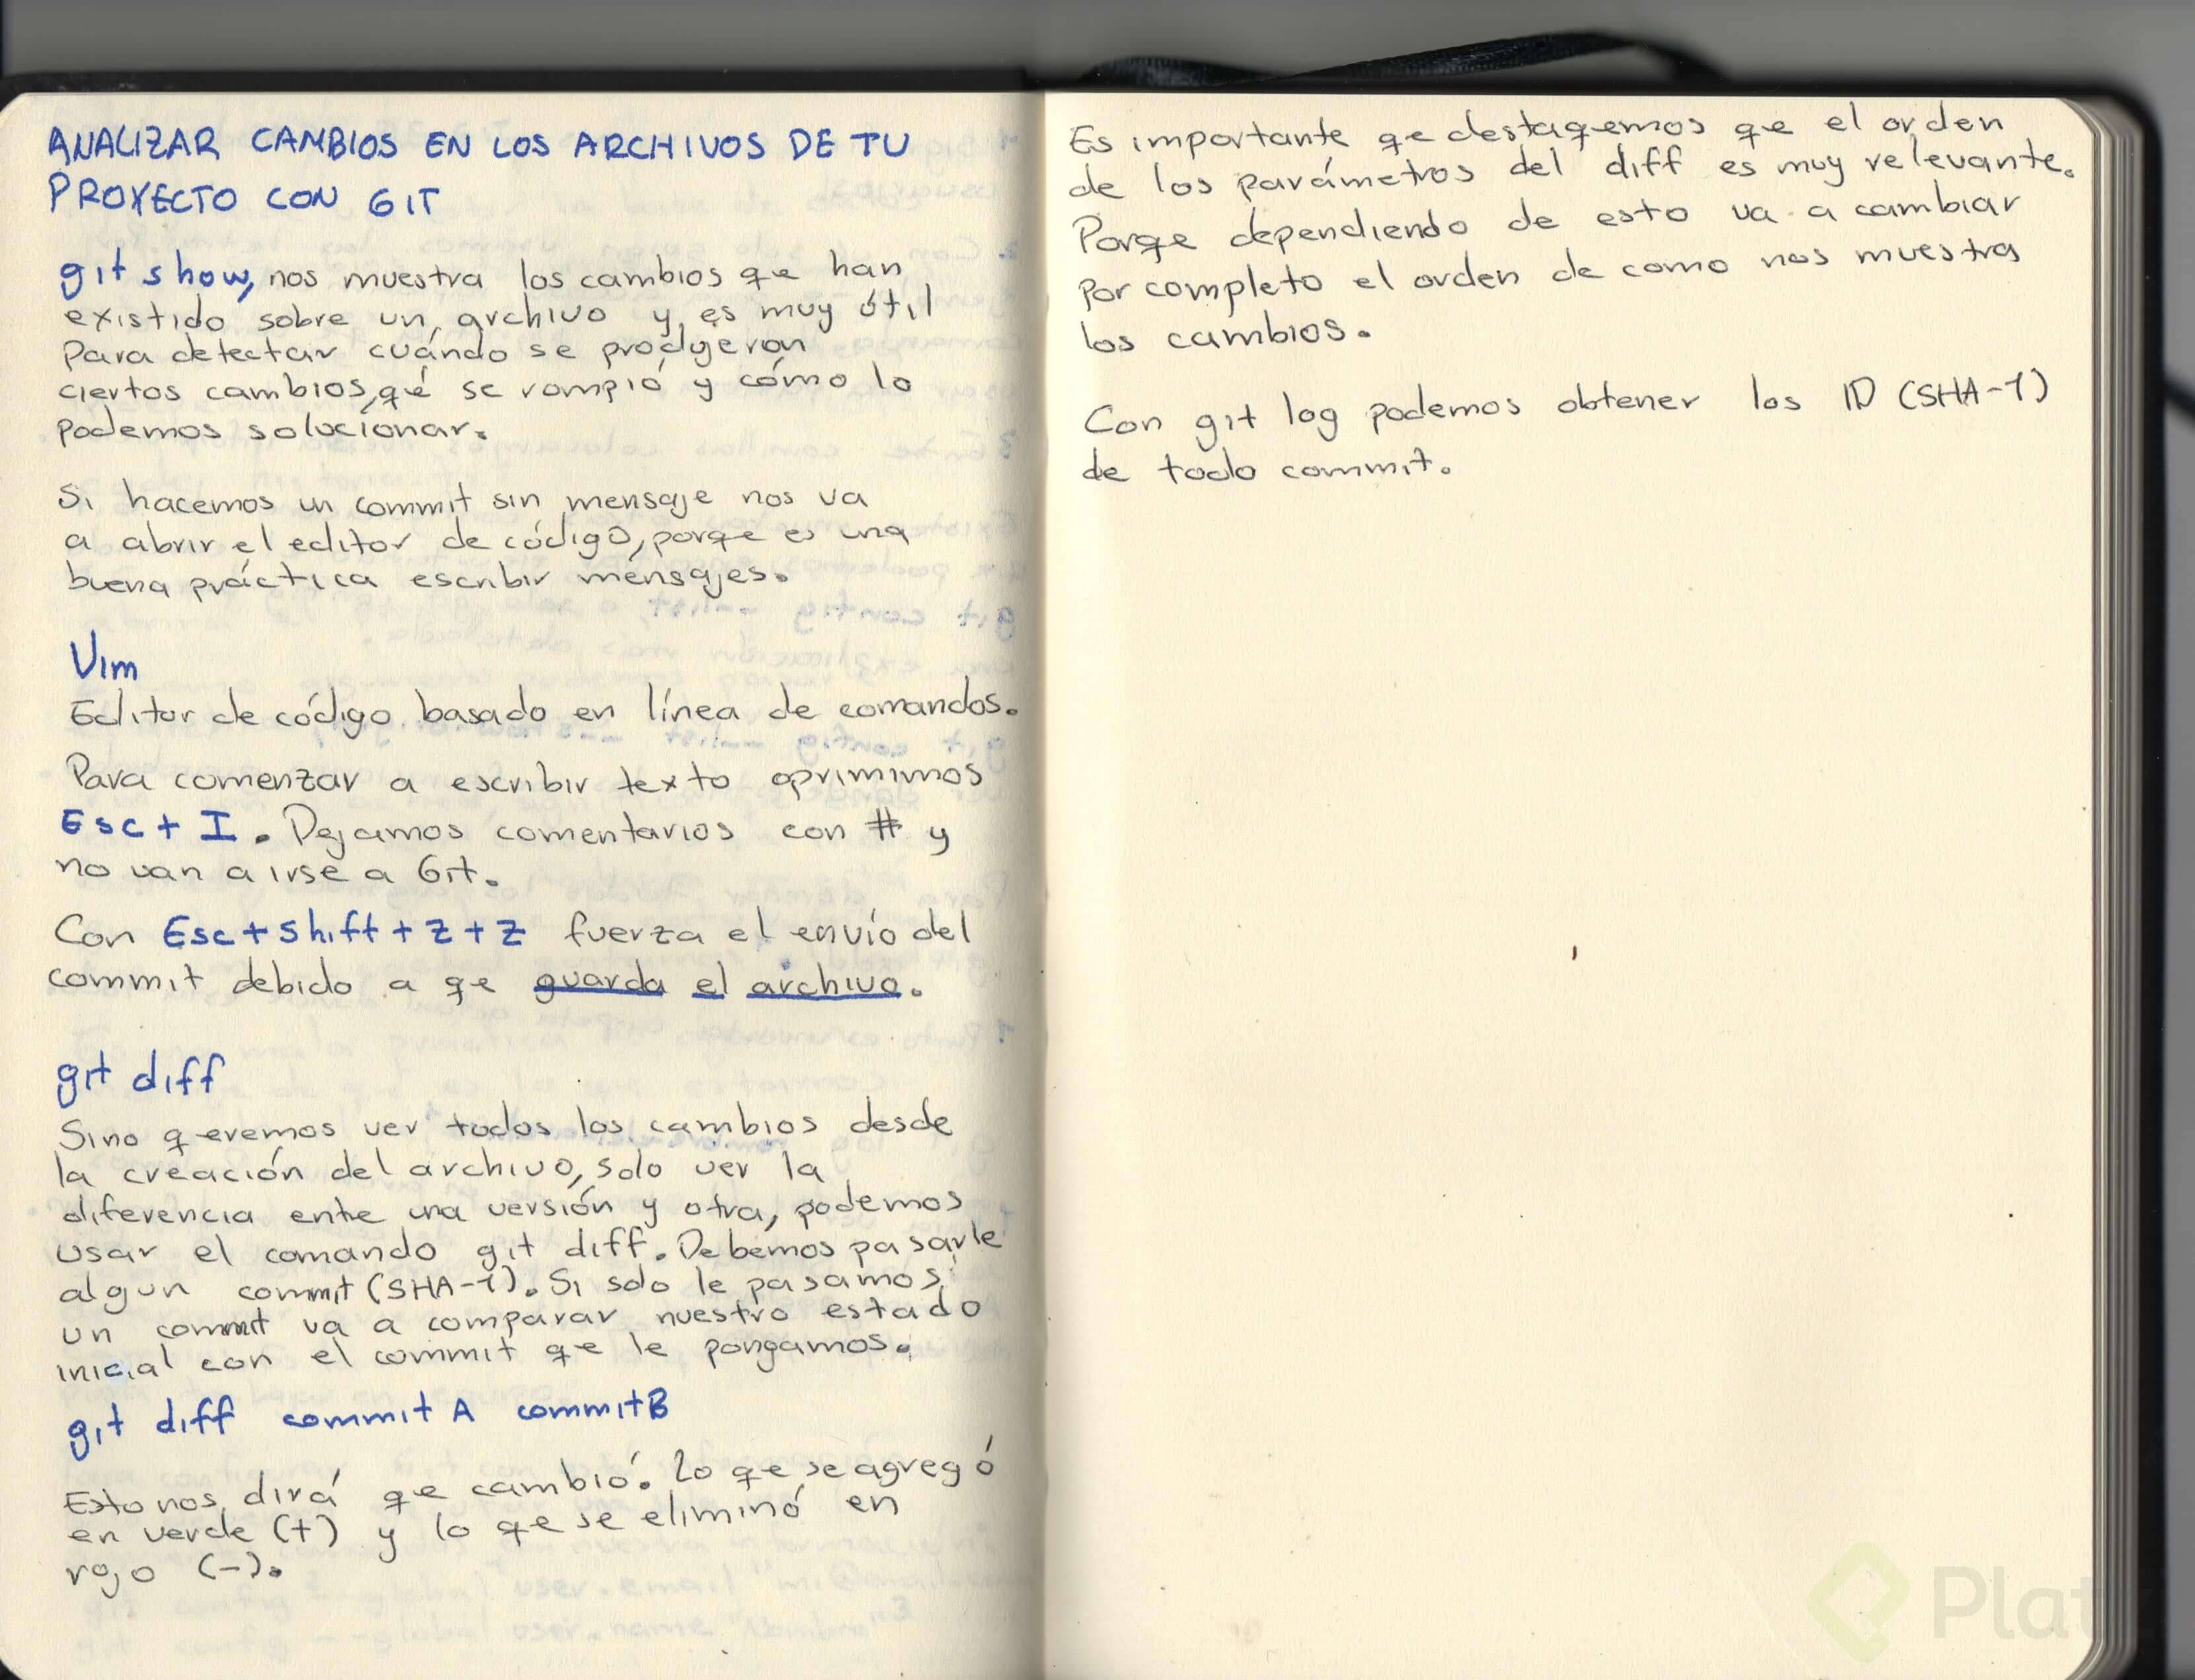 ANALIZAR CAMBIOS EN LOS ARCHIVOS DE TU
PROYECTO CON GIT
git show, nos muestra los cambios qe han
existido sobre un archivo y es muy útil
para detectar cuándo se produjeron
ciertos cambios, qé se rompió y cómo lo
podemos solucionar.
Si hacemos un commit sin mensaje nos va
a abrir el editor de código, porqe es una
buena práctica escribir mensajes.
Vim
Editor de código basado en línea de comandos.
Para comenzar a escribir texto oprimimos
Esc + I. Dejamos comentarios con # y
no van a irse a Git.
Con Esc + Shift + Z + Z fuerza el envío del
commit debido a qe guarda el archivo.
git diff
Sino qeremos ver todos los cambios desde
la creación del archivo, solo ver la
diferencia entre una versión y otra, podemos
usar el comando git diff. Debemos pasarle
algun commit (SHA-1). Si solo le pasamos
un commit va a comparar nuestro estado
inicial con el commit qe le pongamos.
git diff commit A commitB
Esto nos dirá qe cambió. Lo qe se agregó
en verde (+) y lo qe se eliminó en
rojo (-).
Es importante qe destaqemos qe el orden
de los parámetros del diff es muy relevante.
Porqe dependiendo de esto va a cambiar
por completo el orden de como nos muestra
los cambios.
Con git log podemos obtener los ID (SHA-1)
de todo commit.
Platz